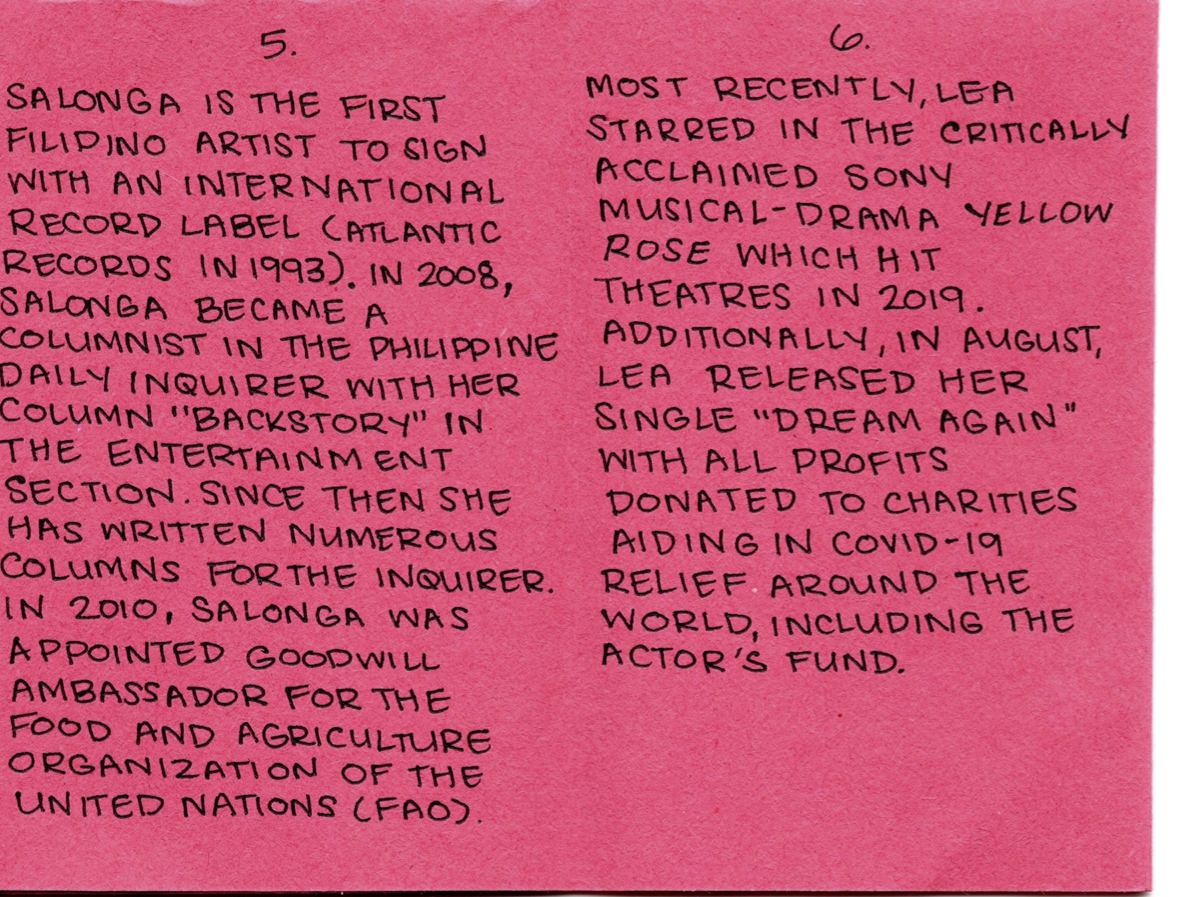 5.
SALONGA IS THE FIRST
FILIPINO ARTIST TO SIGN
WITH AN INTERNATIONAL
RECORD LABEL (ATLANTIC
RECORDS IN 1993). IN 2008,
SALONGA BECAME A
COLUMNIST IN THE PHILIPPINE
DAILY INQUIRER WITH HER
COLUMN "BACKSTORY" IN
THE ENTERTAINMENT
SECTION. SINCE THEN SHE
HAS WRITTEN NUMEROUS
COLUMNS FOR THE INQUIRER.
IN 2010, SALONGA WAS
APPOINTED GOODWILL
AMBASSADOR FOR THE
FOOD AND AGRICULTURE
ORGANIZATION OF THE
UNITED NATIONS (FAO).
6.
MOST RECENTLY, LEA
STARRED IN THE CRITICALLY
ACCLAIMED SONY
MUSICAL-DRAMA YELLOW
ROSE WHICH HIT
THEATRES IN 2019.
ADDITIONALLY, IN AUGUST,
LEA RELEASED HER
SINGLE "DREAM AGAIN"
WITH ALL PROFITS
DONATED TO CHARITIES
AIDING IN COVID-19
RELIEF AROUND THE
WORLD, INCLUDING THE
ACTOR'S FUND.